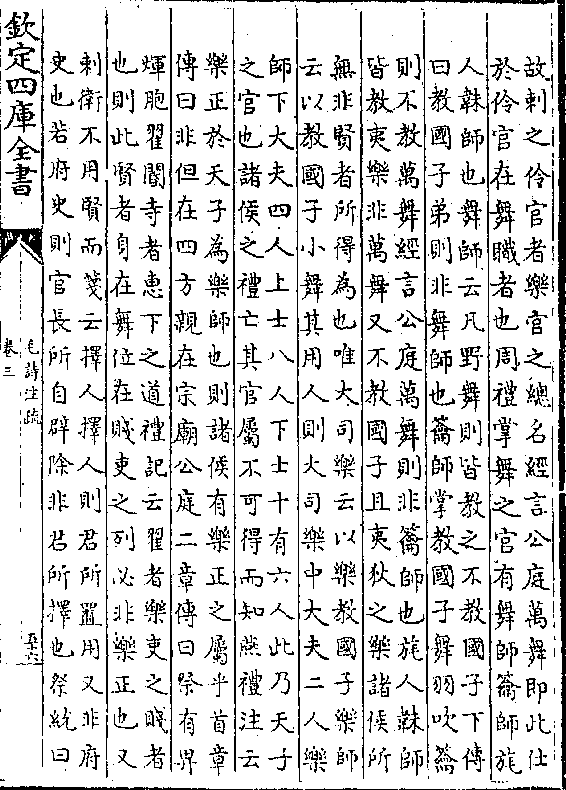 故刺之伶官者樂官之總名經言公庭萬舞即此仕
於伶官在舞職者也周禮掌舞之官有舞師籥師旄
人韎師也舞師云凡野舞則皆教之不教國子下傳
曰教國子弟則非舞師也籥師掌教國子舞羽吹籥
則不教萬舞經言公庭萬舞則非籥師也旄人韎師
皆教夷樂非萬舞又不教國子且夷狄之樂諸侯所
無非賢者所得為也唯大司樂云以樂教國子樂師
云以教國子小舞其用人則大司樂中大夫二人樂
師下大夫四人上士八人下士十有六人此乃天子
之官也諸侯之禮亡其官屬不可得而知燕禮注云
樂正於天子為樂師也則諸侯有樂正之屬乎首章
傳曰非但在四方親在宗廟公庭二章傳曰祭有畀
煇胞翟閽寺者惠下之道禮記云翟者樂吏之賤者
也則此賢者身在舞位在賤吏之列必非樂正也又
刺衛不用賢而箋云擇人擇人則君所置用又非府
史也若府史則官長所自辟除非君所擇也祭統曰
欽定四庫全書
毛詩注疏
卷三
五十六